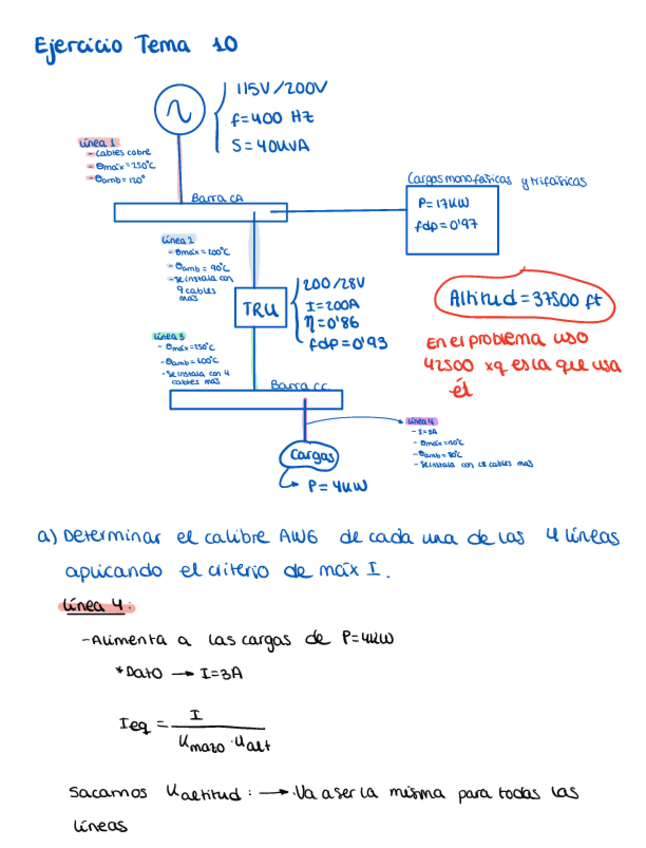 Ejercicio Tema 10
115V/200V
f=400 Hz
S=40kVA
Línea 1
- Cables cobre
- θmáx=250°C
- θamb=120°
Barra CA
Cargas monofásicas y trifásicas
P=17kW
fdp=0'97
Línea 2
- θmáx=200°C
- θamb=90°C
- Se instala con 9 cables más
TRU
200/28V
I=200A
η=0'86
fdp=0'93
Altitud=37500 ft
En el problema uso
42500 xq es la que usa
él
Línea 3
- Se instala con 4
cables más
Barra CC
Línea 4
- I=3A
Cargas
P=4kW
a) Determinar el calibre AWG de cada una de las 4 líneas
aplicando el criterio de máx I.
Línea 4:
-Alimenta a las cargas de P=4kW
*Dato → I=3A
Ieq = I / Kmazo · Kalt
Sacamos Kaltitud: → Va a ser la misma para todas las
líneas